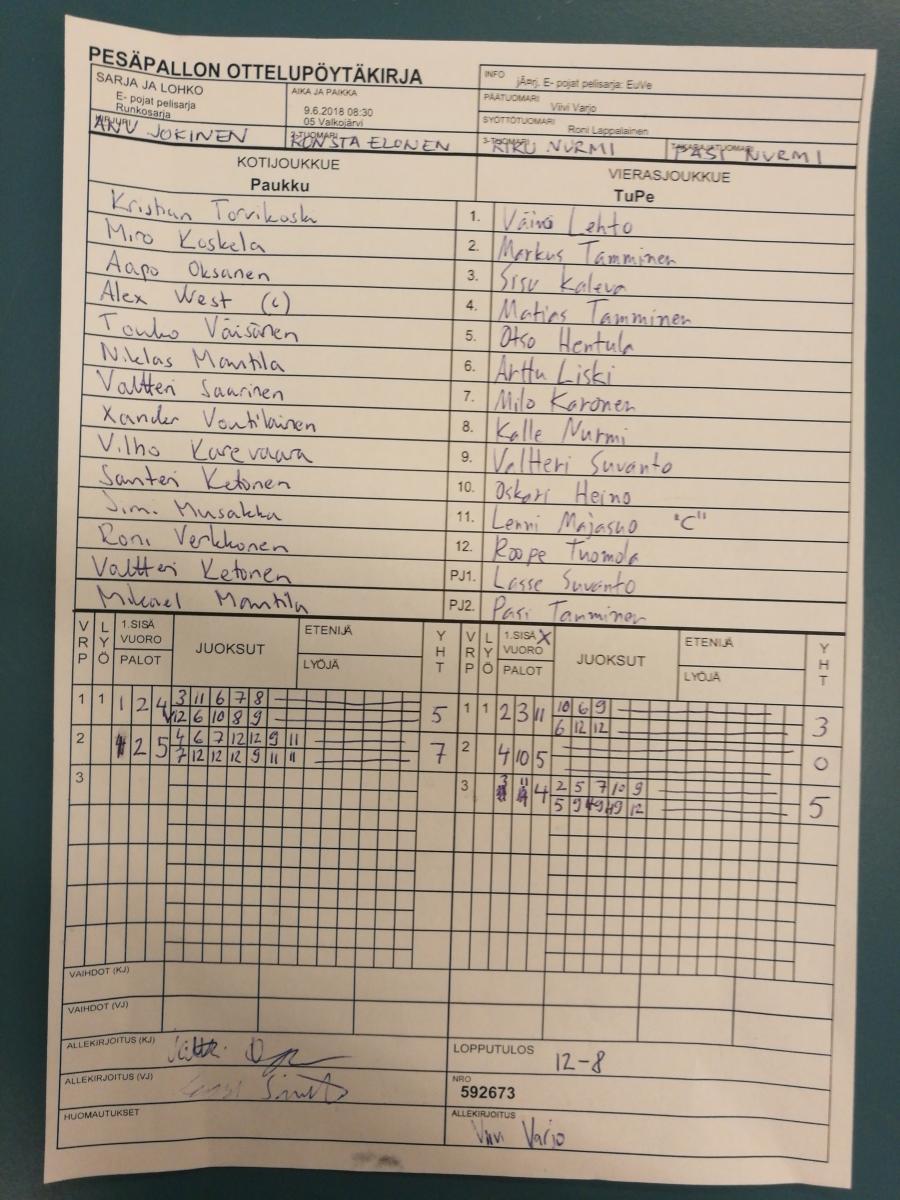 PESÄPALLON OTTELUPÖYTÄKIRJA
SARJA JA LOHKO
E- pojat pelisarja
Runkosarja
KIRJURI
ANU JOKINEN
AIKA JA PAIKKA
9.6.2018 08:30
05 Valkojärvi
2-TUOMARI
KONSTA ELONEN
INFO
jÃ¤rj. E- pojat pelisarja: EuVe
PÄÄTUOMARI
Viivi Varjo
SYÖTTÖTUOMARI
Roni Lappalainen
3-TUOMARI
RIKU NURMI
TAKARAJATUOMARI
PASI NURMI
KOTIJOUKKUE
Paukku
VIERASJOUKKUE
TuPe
Kristian Torvikoski 1. Väinö Lehto
Miro Koskela 2. Markus Tamminen
Aapo Oksanen 3. Sisu Kaleva
Alex West (c) 4. Matias Tamminen
Touko Väisänen 5. Otso Hentula
Niklas Mantila 6. Arttu Liski
Valtteri Saarinen 7. Milo Karonen
Xander Voutilainen 8. Kalle Nurmi
Vilho Karevaara 9. Valtteri Suvanto
Santeri Ketonen 10. Oskari Heino
Simi Musakka 11. Lenni Majasuo "C"
Roni Verkkonen 12. Roope Tuomola
Valtteri Ketonen PJ1. Lasse Suvanto
Mikael Mantila PJ2. Pasi Tamminen
VRP LYÖ 1.SISÄ VUORO PALOT JUOKSUT ETENIJÄ LYÖJÄ YHT
VRP LYÖ 1.SISÄ X VUORO PALOT JUOKSUT ETENIJÄ LYÖJÄ YHT
1 1 1 2 4 3 11 6 7 8 5
12 6 10 8 9
1 1 2 3 11 10 6 9 3
6 12 12
2 2 5 4 6 7 12 12 9 11 7
7 12 12 12 9 11 11
2 4 10 5 0
3
3 3 11 4 2 5 7 10 9 5
5 9 9 12
VAIHDOT (KJ)
VAIHDOT (VJ)
ALLEKIRJOITUS (KJ)
ALLEKIRJOITUS (VJ)
HUOMAUTUKSET
LOPPUTULOS
12-8
NRO
592673
ALLEKIRJOITUS
Viivi Varjo